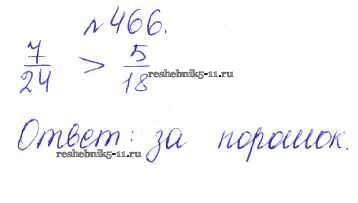 №466.
7/24 > 5/18
reshebnik5-11.ru
Ответ: за порошок.
reshebnik5-11.ru